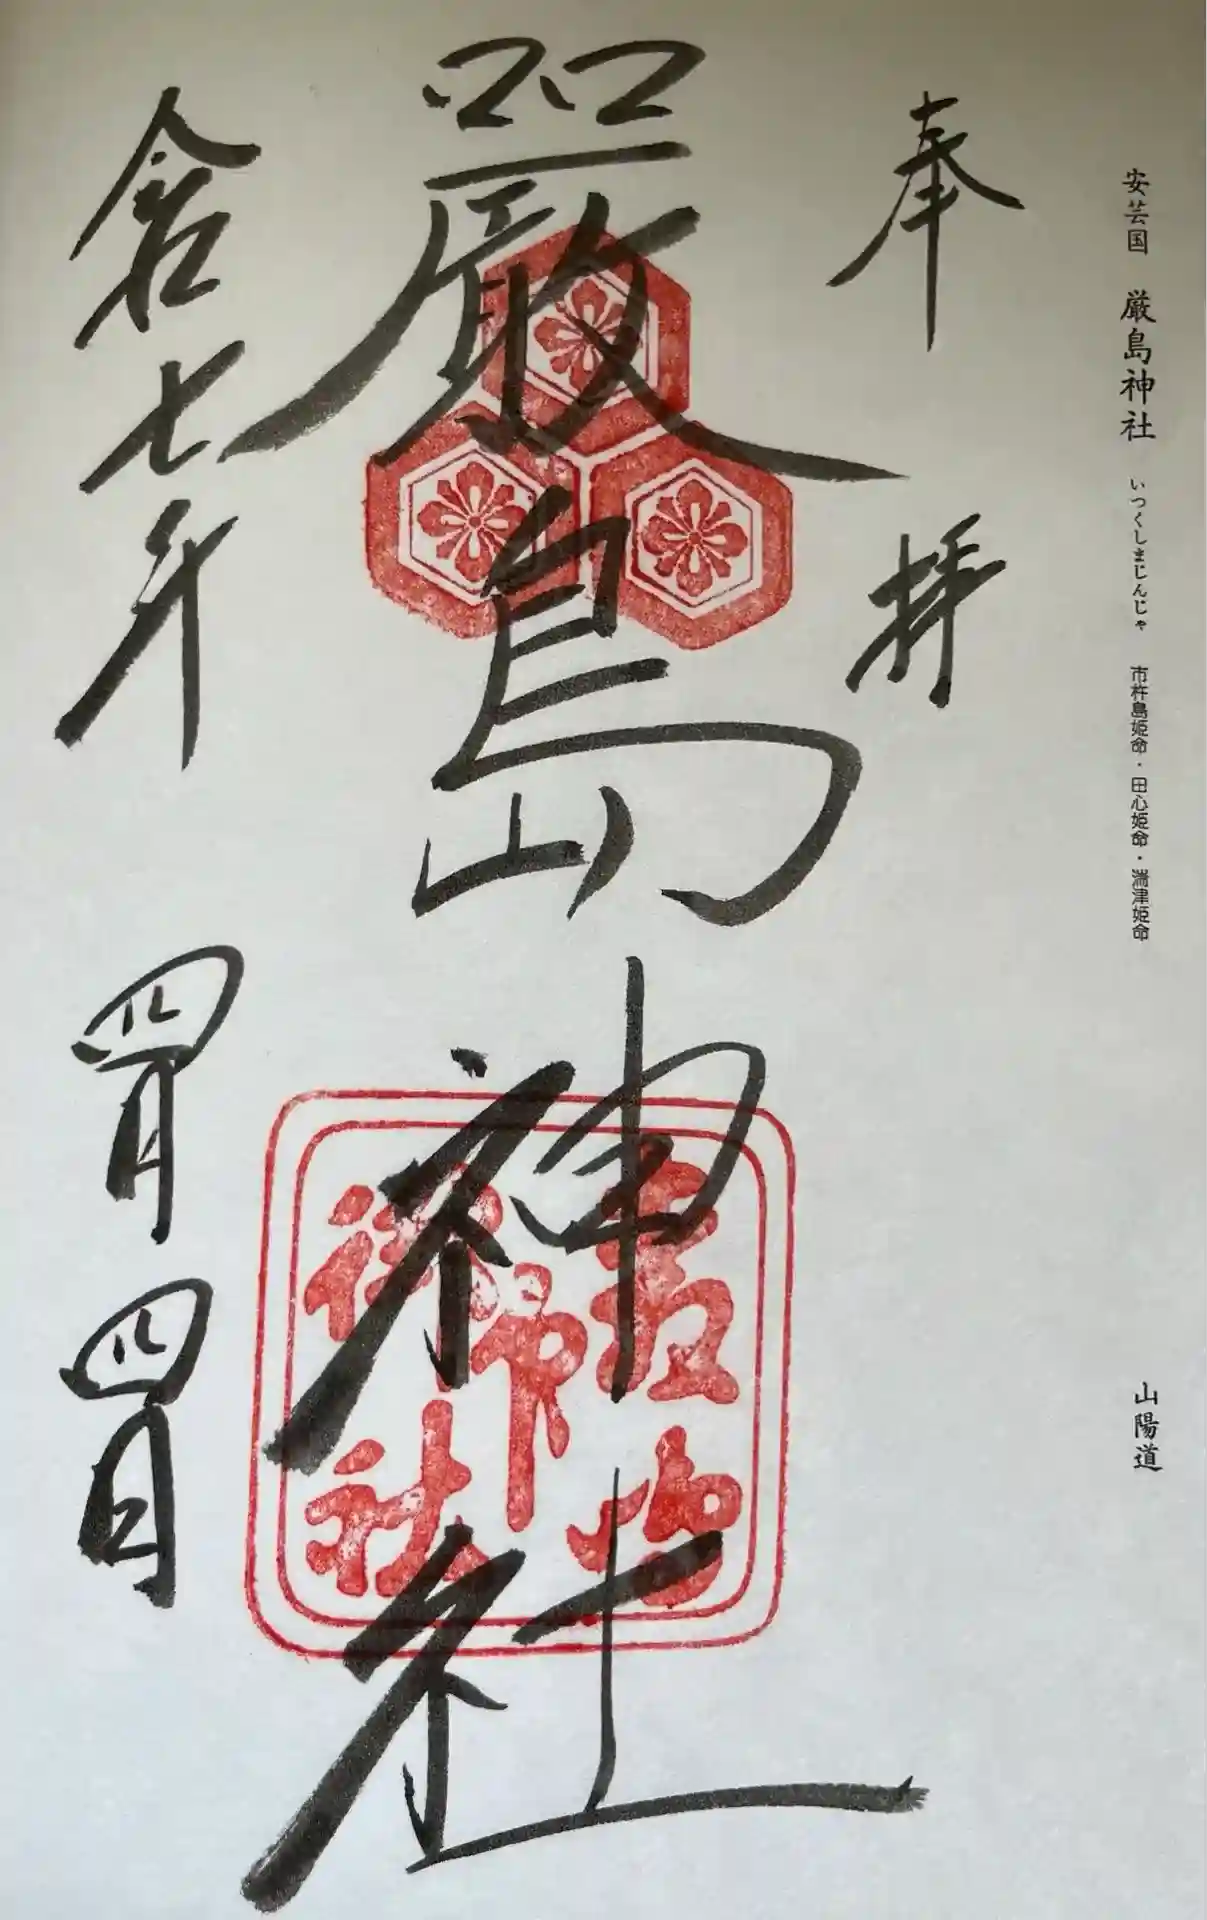 安芸国 厳島神社 いつくしまじんじゃ 市杵島姫命・田心姫命・湍津姫命
山陽道
奉拝
嚴島神社
令和七年 四月四日